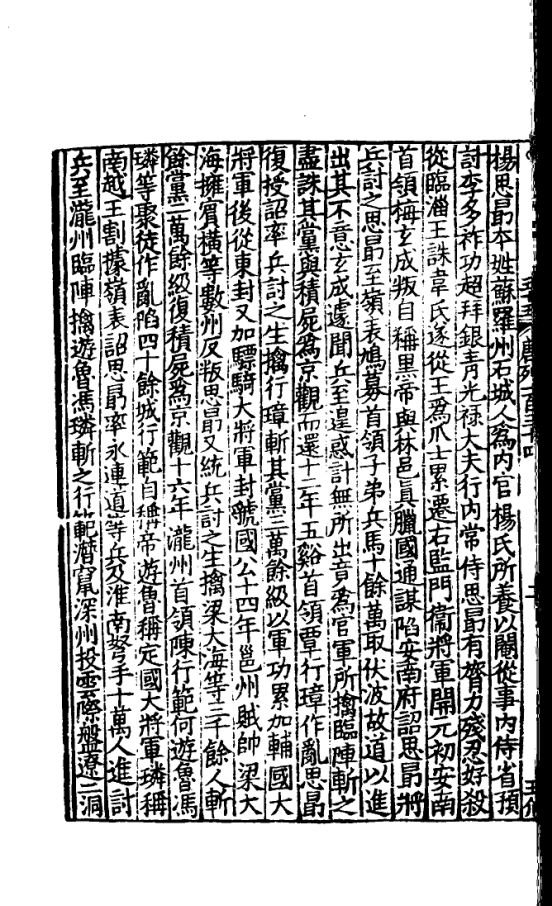 楊思勗本姓蘇羅州石城人爲内官楊氏所養以閹從事内侍省預
討李多祚功超拜銀青光禄大夫行内常侍思勗有膂力殘忍好殺
從臨淄王誅韋氏遂從王爲爪士累遷右監門衞將軍開元初安南
首領梅玄成叛自稱黑帝與林邑真臘國通謀陷安南府詔思勗將
兵討之思勗至嶺表鳩募首領子弟兵馬十餘萬取伏波故道以進
出其不意玄成遽聞兵至遑惑計無所出竟爲官軍所擒臨陣斬之
盡誅其黨與積屍爲京觀而還十二年五谿首領覃行璋作亂思勗
復授詔率兵討之生擒行璋斬其黨三萬餘級以軍功累加輔國大
將軍後從東封又加驃騎大將軍封虢國公十四年邕州賊帥梁大
海擁賓橫等數州反叛思勗又統兵討之生擒梁大海等三千餘人斬
餘黨二萬餘級復積屍爲京觀十六年瀧州首領陳行範何遊魯馮
璘等聚徒作亂陷四十餘城行範自稱帝遊魯稱定國大將軍璘稱
南越王割據嶺表詔思勗率永連道等兵及淮南弩手十萬人進討
兵至瀧州臨陣擒遊魯馮璘斬之行範潛竄深州投雲際盤遼二洞